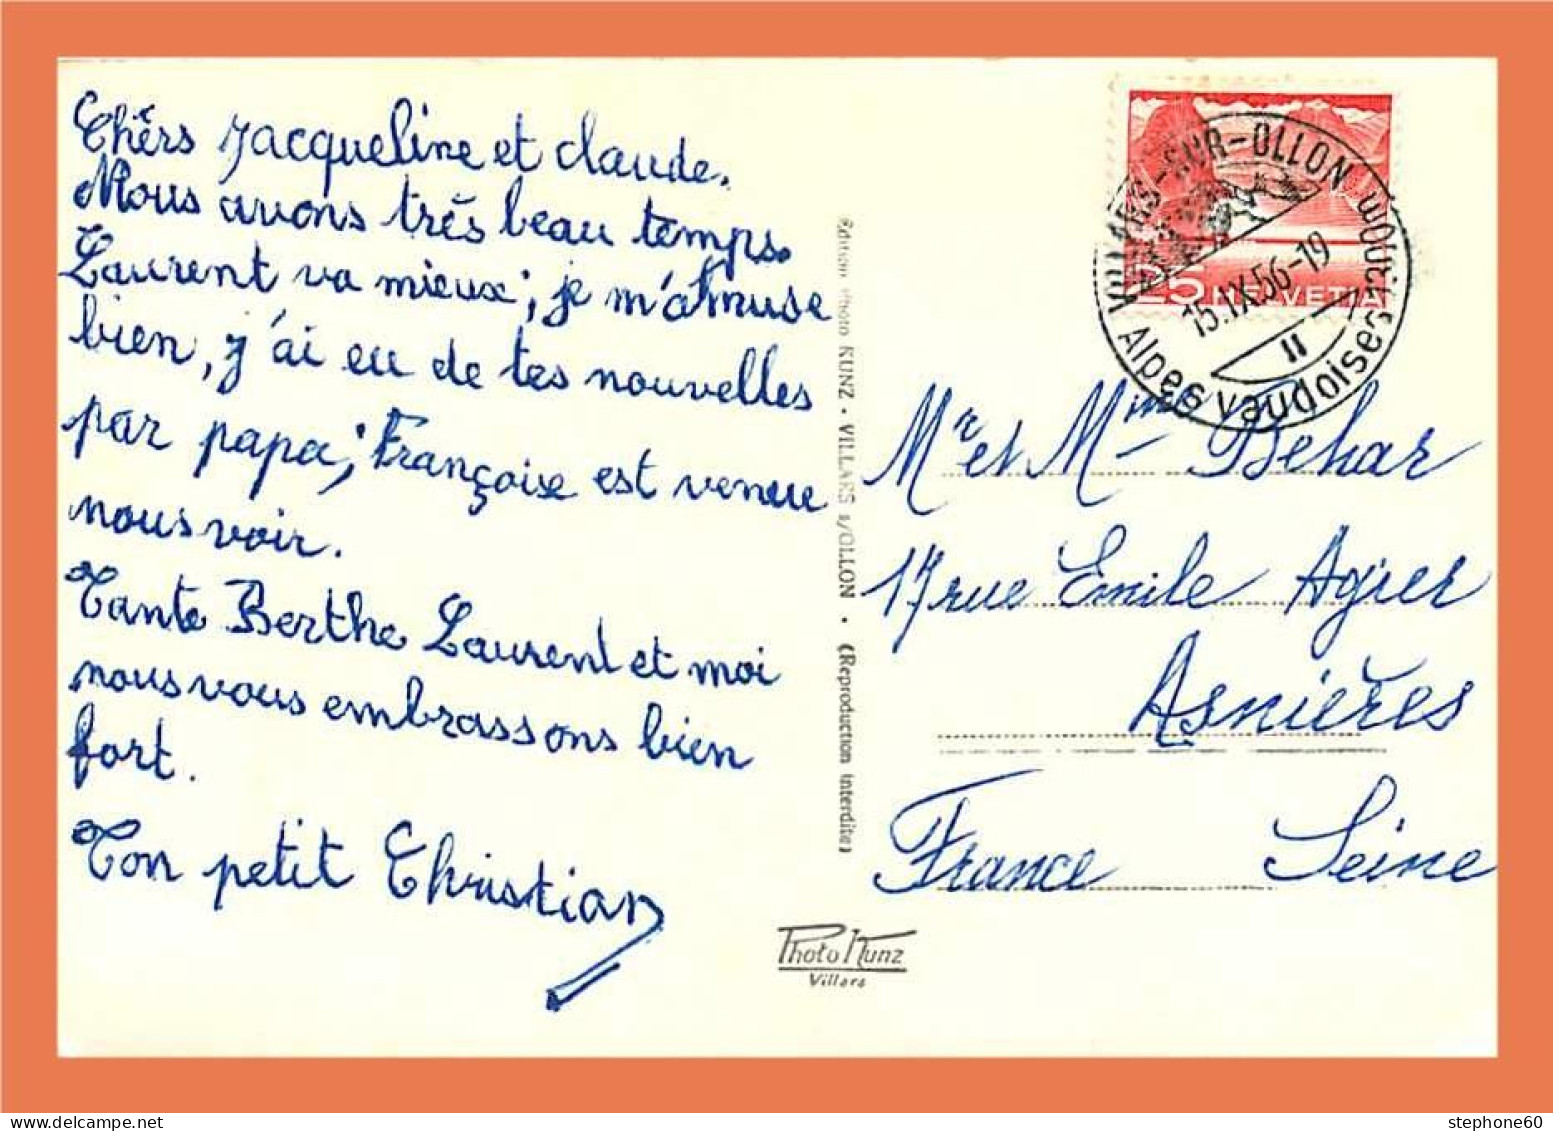 Chèrs Jacqueline et claude.
Nous avons très beau temps.
Laurent va mieux; je m'amuse
bien, j'ai eu de tes nouvelles
par papa; Françoise est venue
nous voir.
Tante Berthe Laurent et moi
nous vous embrassons bien
fort.
Ton petit Christian
Edition Photo KUNZ - VILLARS s/OLLON - (Reproduction interdite)
Photo Kunz
Villars
VILLARS-SUR-OLLON
1300m
15.IX.56-19
II
Alpes vaudoises
25 HELVETIA
Mr et Mme Behar
17 rue Emile Agier
Asnières
France Seine
stephone60